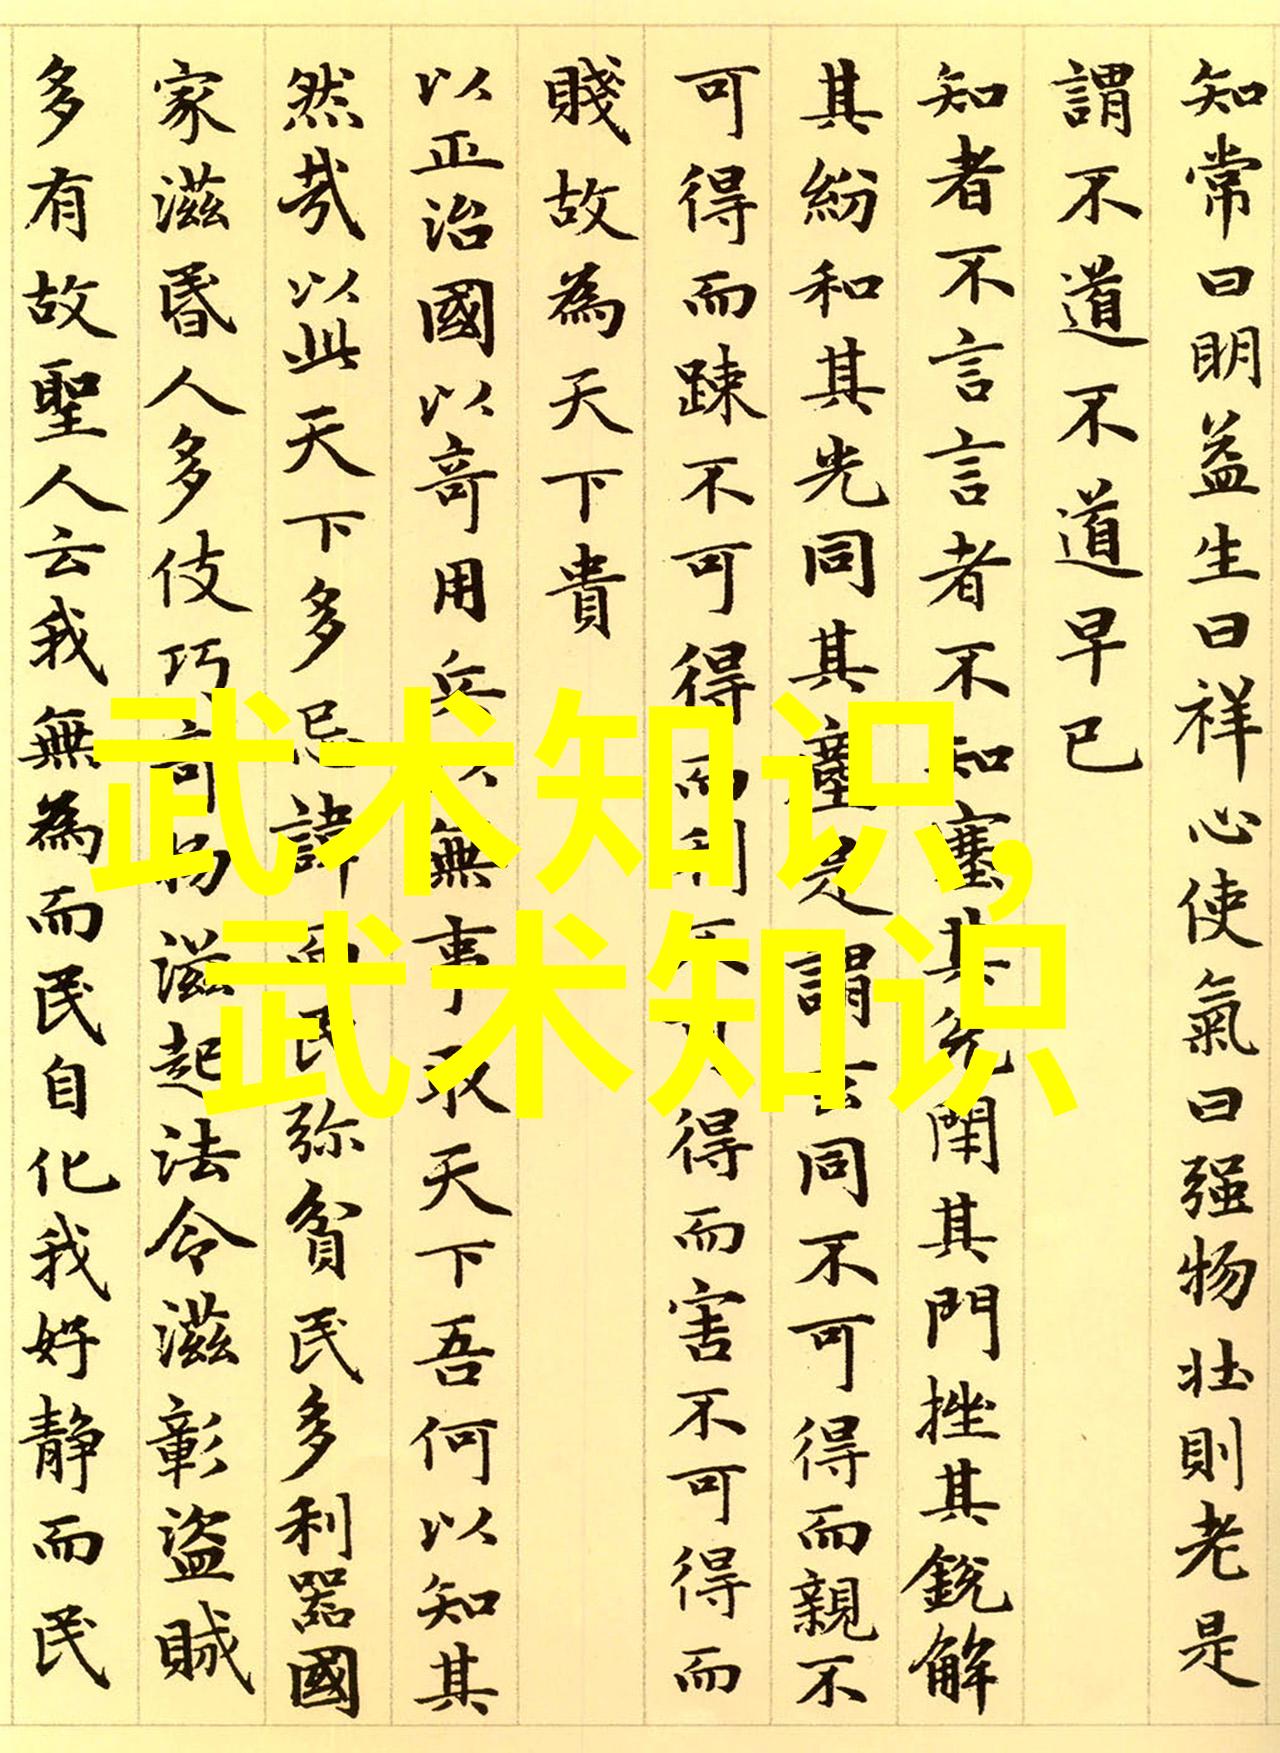 知常曰明益生曰祥心使氣曰强物壮則老是
謂不道不道早已
知者不言言者不知塞其兊閇其門挫其銳解
其紛和其光同其塵是謂玄同不可得而親不
可得而踈不可得而利不可得而害不可得而
賤故為天下貴
以正治國以竒用兵以無事取天下吾何以知其
然㢤以此天下多忌諱而民弥貧民多利器國
家滋昬人多伎巧奇物滋起法令滋彰盗賊
多有故聖人云我無為而民自化我好静而民
武术知识,
武术知识